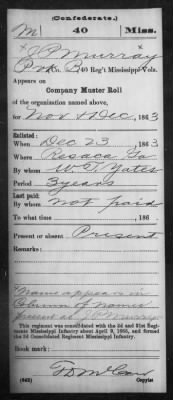 (Confederate.)
M 40 Miss.
J P Murray
Pvt, Co. B, 40 Reg't Mississippi Vols.
Appears on
Company Muster Roll
of the organization named above,
for Nov & Dec, 1863
Enlisted:
When Dec 23, 1863
Where Resaca Ga
By whom W. T. Yates
Period 3 years
Last paid:
By whom Not paid
To what time , 186
Present or absent Present
Remarks:
Name appears in
Column of Names
present as J P Murray
This regiment was consolidated with the 3d and 31st Regiments
Mississippi Infantry about April 9, 1865, and formed
the 3d Consolidated Regiment Mississippi Infantry.
Book mark:
(642)
Copyist.